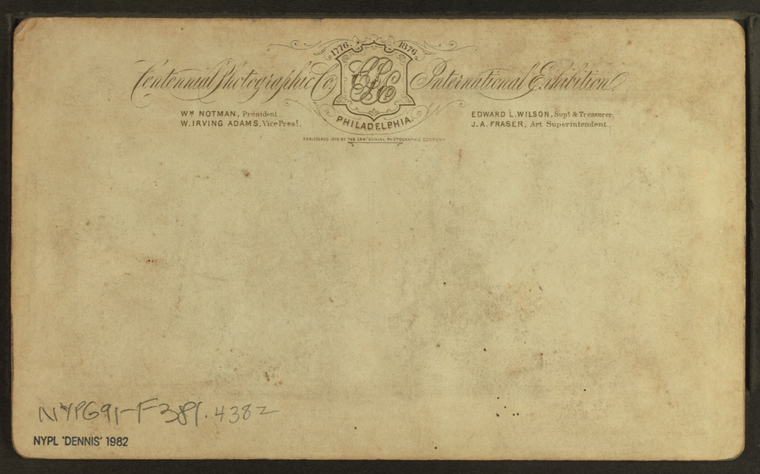 1776 1876
Centennial Photographic Co. CPC International Exhibition
PHILADELPHIA.
Wm NOTMAN, President.
W. IRVING ADAMS, Vice Prest.
EDWARD L. WILSON, Supt & Treasurer.
J. A. FRASER, Art Superintendent.
1876 BY THE CENTENNIAL PHOTOGRAPHIC COMPANY
NYPG91-F381.4382
NYPL 'DENNIS' 1982